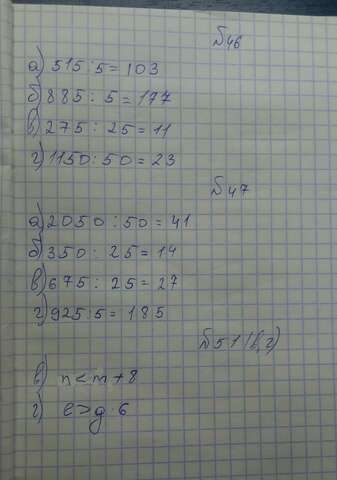 №46
а) 515:5=103
б) 885:5=177
в) 275:25=11
г) 1150:50=23
№47
а) 2050:50=41
б) 350:25=14
в) 675:25=27
г) 925:5=185
№51(в,г)
в) n<m+8
г) e>g·6